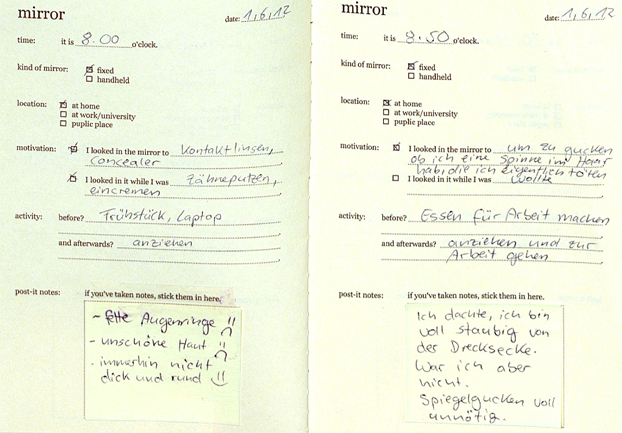 mirror
date: 1,6,12
time: it is 8.00 o'clock.
kind of mirror: fixed
handheld
location: at home
at work/university
puplic place
motivation: I looked in the mirror to Kontaktlinsen,
Concealer
I looked in it while I was Zähneputzen,
eincremen
activity: before? Frühstück, Laptop
and afterwards? anziehen
post-it notes: if you've taken notes, stick them in here.
- fette Augenringe !!
- unschöne Haut !!
- immerhin nicht
dick und rund !!
mirror
date: 1,6,12
time: it is 8.50 o'clock.
kind of mirror: fixed
handheld
location: at home
at work/university
puplic place
motivation: I looked in the mirror to um zu gucken
ob ich eine Spinne im Haar
hab, die ich eigentlich töten
I looked in it while I was wollte
activity: before? Essen für Arbeit machen
and afterwards? anziehen und zur
Arbeit gehen
post-it notes: if you've taken notes, stick them in here.
Ich dachte, ich bin
voll staubig von
der Drecksecke.
War ich aber
nicht.
Spiegelgucken voll
unnötig.